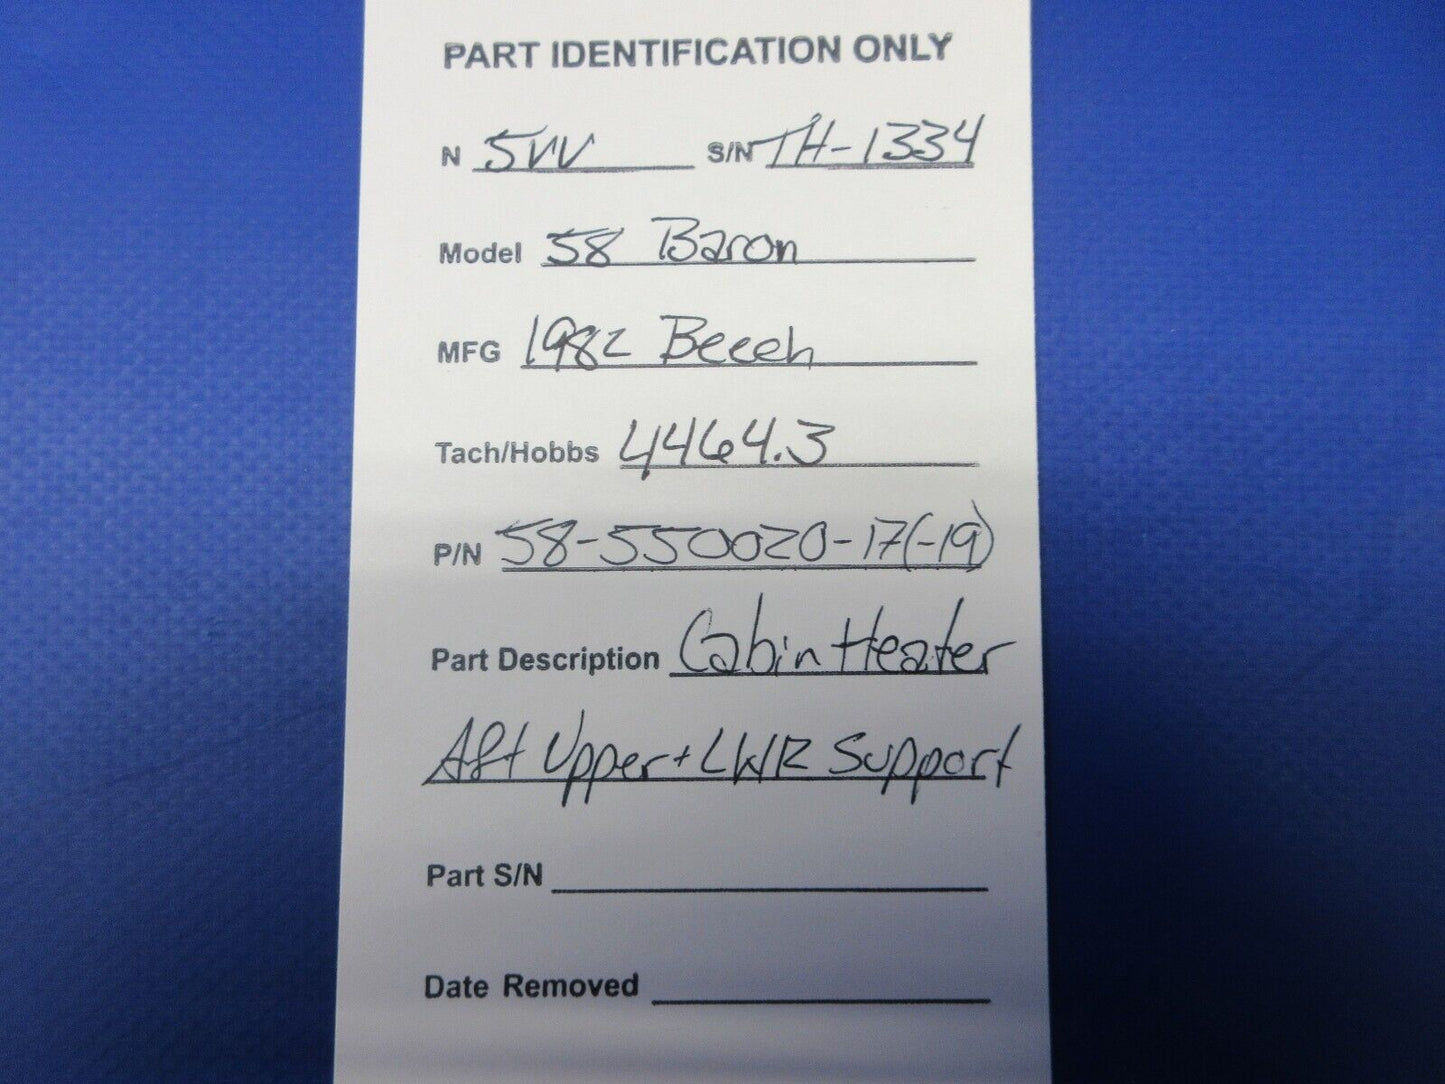 PART IDENTIFICATION ONLY
N 5VV S/N TH-1334
Model 58 Baron
MFG 1982 Beech
Tach/Hobbs 4464.3
P/N 58-550020-17(-19)
Part Description Cabin Heater
Aft Upper + LWR Support
Part S/N
Date Removed